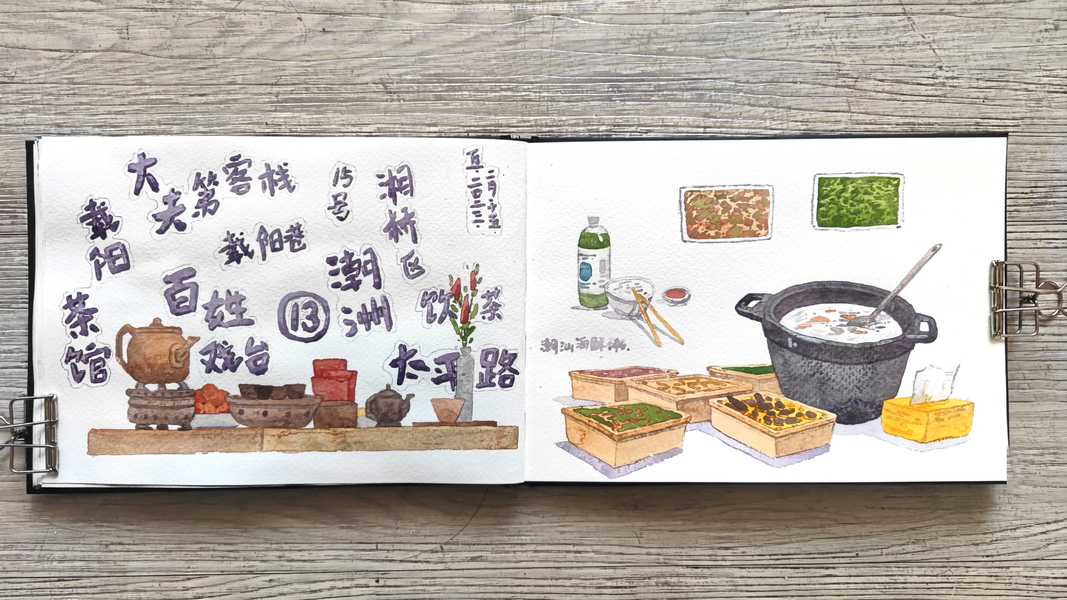 大夫第客栈
戴阳茶馆
戴阳巷
15号
湘桥区
二〇二三
百姓戏台
⑬
潮州
饮茶
太平路
潮汕海鲜粥.